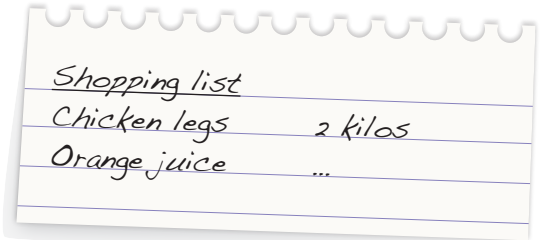 Shopping list
Chicken legs 2 kilos
Orange juice ...